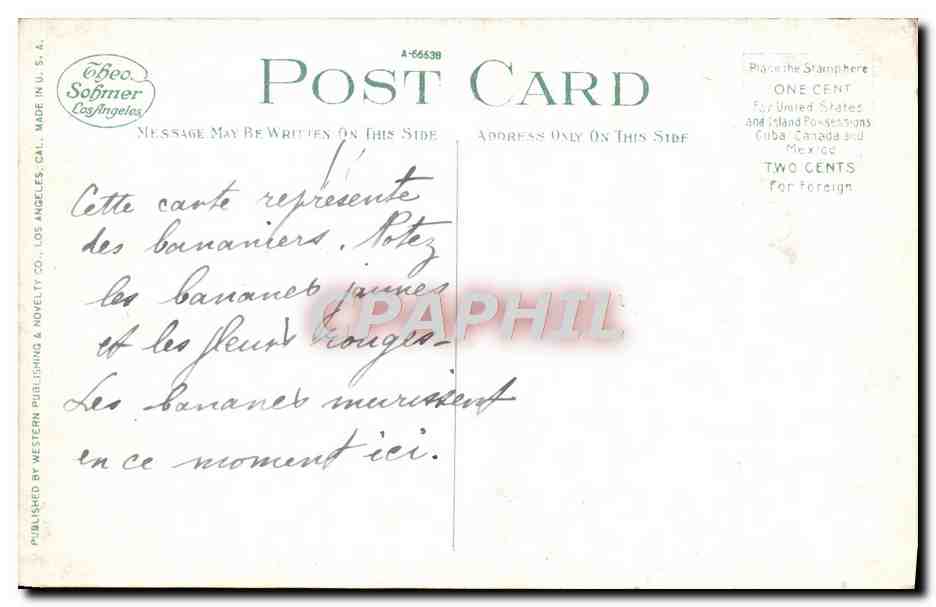 A-66638
Theo.
Sohmer
Los Angeles
POST CARD
Place the Stamp here
ONE CENT
For United States
and Island Possessions
Cuba, Canada and
Mexico
TWO CENTS
For Foreign
MESSAGE MAY BE WRITTEN ON THIS SIDE
ADDRESS ONLY ON THIS SIDE
PUBLISHED BY WESTERN PUBLISHING & NOVELTY CO., LOS ANGELES, CAL. MADE IN U. S. A.
Cette carte représente
des bananiers. Notez
les bananes jaunes
et les fleurs rouges-
Les bananes murissent
en ce moment ici.
CPAPHIL